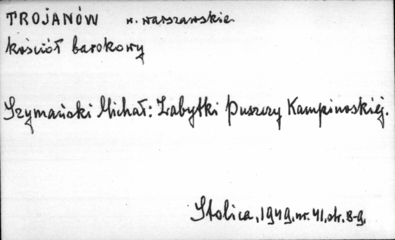 TROJANÓW w. warszawskie
kościół barokowy
Szymański Michał: Zabytki Puszczy Kampinoskiej.
Stolica, 1949, nr. 41, str. 8-9.